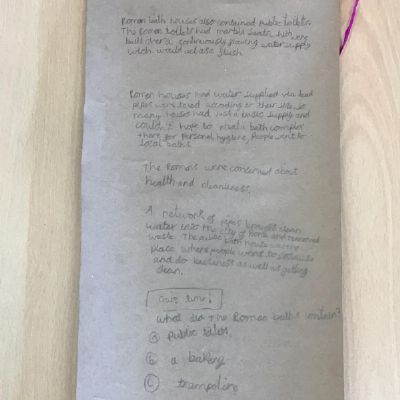 Roman bath houses also contained public toilets.
The Roman toilets had marble seats which were
built over a continuously flowing water supply
which would act as a flush
Roman houses had water supplied via lead
pipes were taxed according to their size, so
many houses had just a basic supply and
couldn't hope to rival a bath complex
there for personal hygiene, People went to
local baths.
The Romans were concerned about
health and cleanliness.
A network of pipes brought clean
water into the city of Rome and removed
waste. The public bath house was a
place where people went to socialise
and do business as well as getting
clean.
Quiz time!
What did the Roman baths contain?
a public toilets.
b a bakery
c trampoline